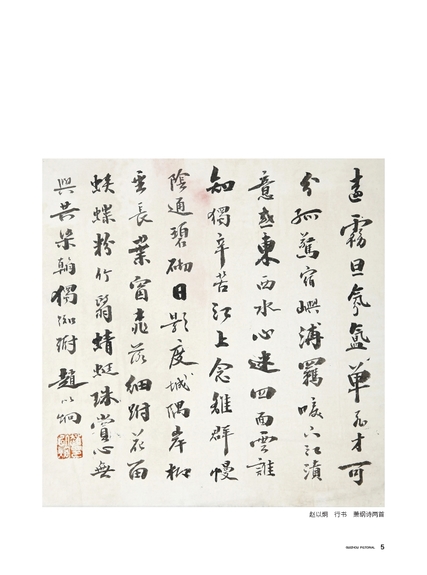 遠霧旦氛氳單飛才可
分孤驚宿嶼浦羈唳下江濆
意惑東西水心迷四面雲誰
知獨辛苦江上念離群幔
陰通碧砌日影度城隅岸柳
垂長葉窗桃落細跗花留
蛺蝶粉竹翳蜻蜓珠賞心無
與共染翰獨踟 趙以炯
赵以炯 行书 萧纲诗两首
GUIZHOU PICTORIAL 5